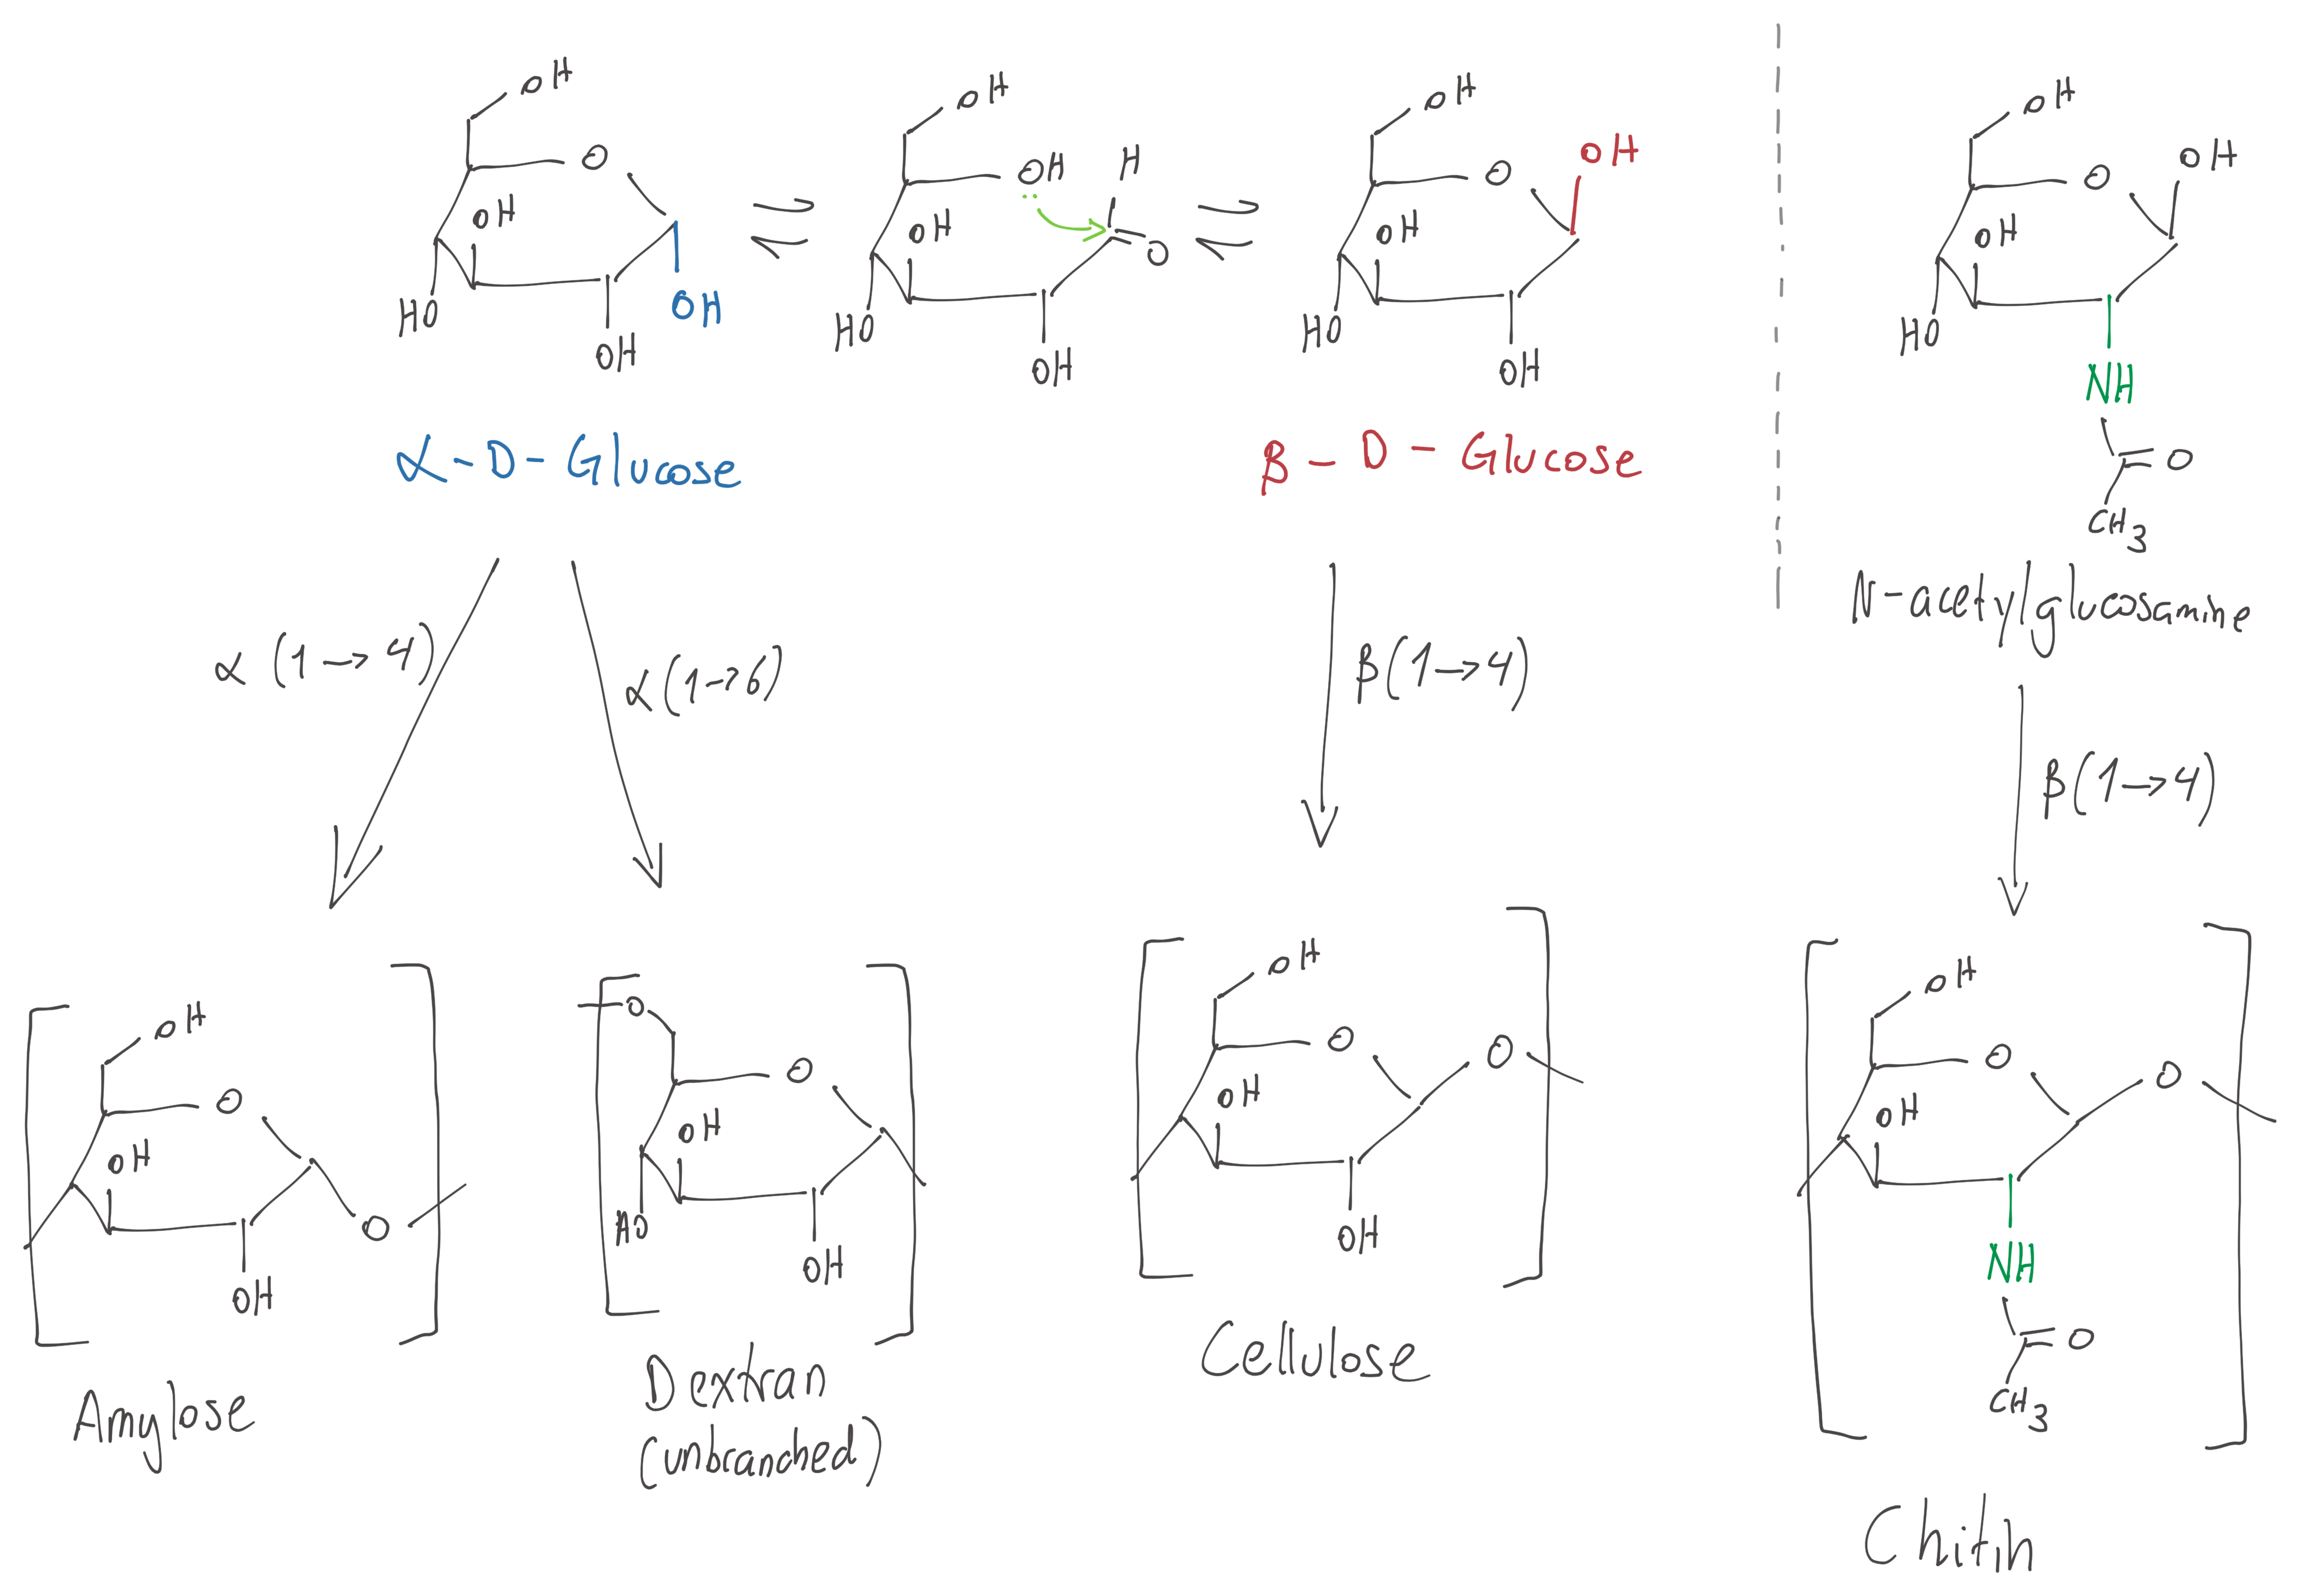 OH
O
OH
OH
HO
OH
α-D-Glucose
OH
OH
H
OH
O
HO
OH
OH
O
OH
OH
HO
OH
β-D-Glucose
OH
O
OH
OH
HO
NH
O
CH3
N-acetylglucosamine
α(1→4)
α(1→6)
β(1→4)
β(1→4)
OH
O
OH
O
OH
Amylose
O
O
OH
HO
OH
Dextran
(unbranched)
OH
O
O
OH
OH
Cellulose
OH
O
O
OH
NH
O
CH3
Chitin